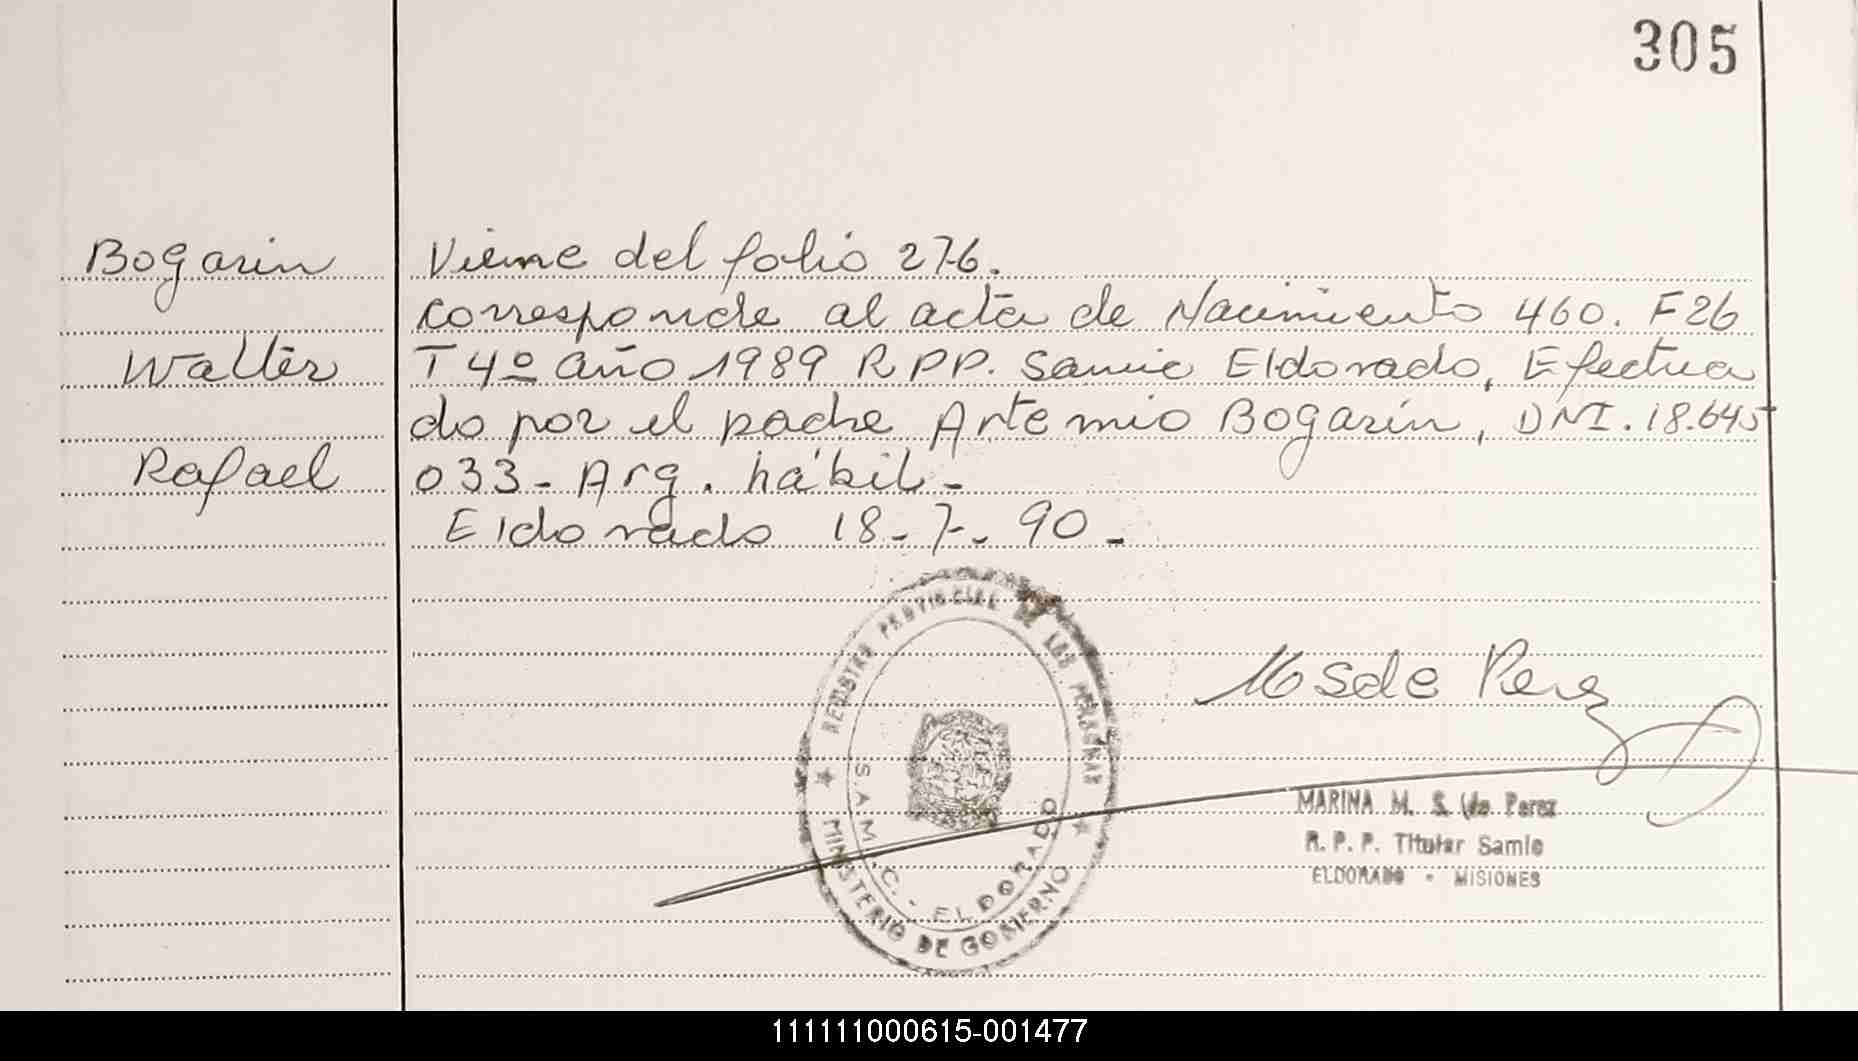 305
Bogarin
Walter
Rafael
Viene del folio 276.
corresponde al acta de Nacimiento 460. F26
T 4º año 1989 R PP. Samic Eldorado, Efectua
do por el padre Artemio Bogarín, DNI. 18.645
033- Arg. hábil-
Eldorado 18-7-90-
REGISTRO PROVINCIAL DE LAS PERSONAS
S.A.M.I.C. - ELDORADO
MINISTERIO DE GOBIERNO
MSde Perez
MARINA M. S. de Perez
R. P. P. Titular Samic
ELDORADO - MISIONES
111111000615-001477